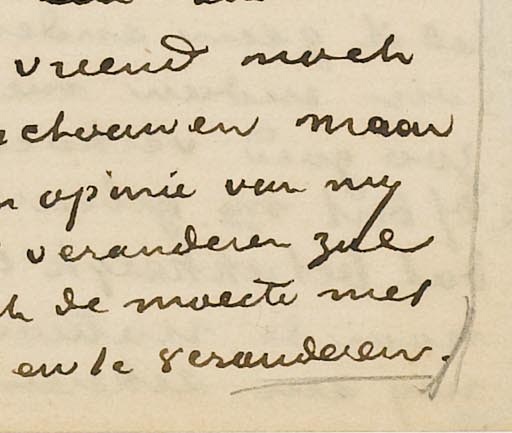 vriend noch
schouwen maar
opinie van my
veranderen zul
de moeite niet
en te veranderen.